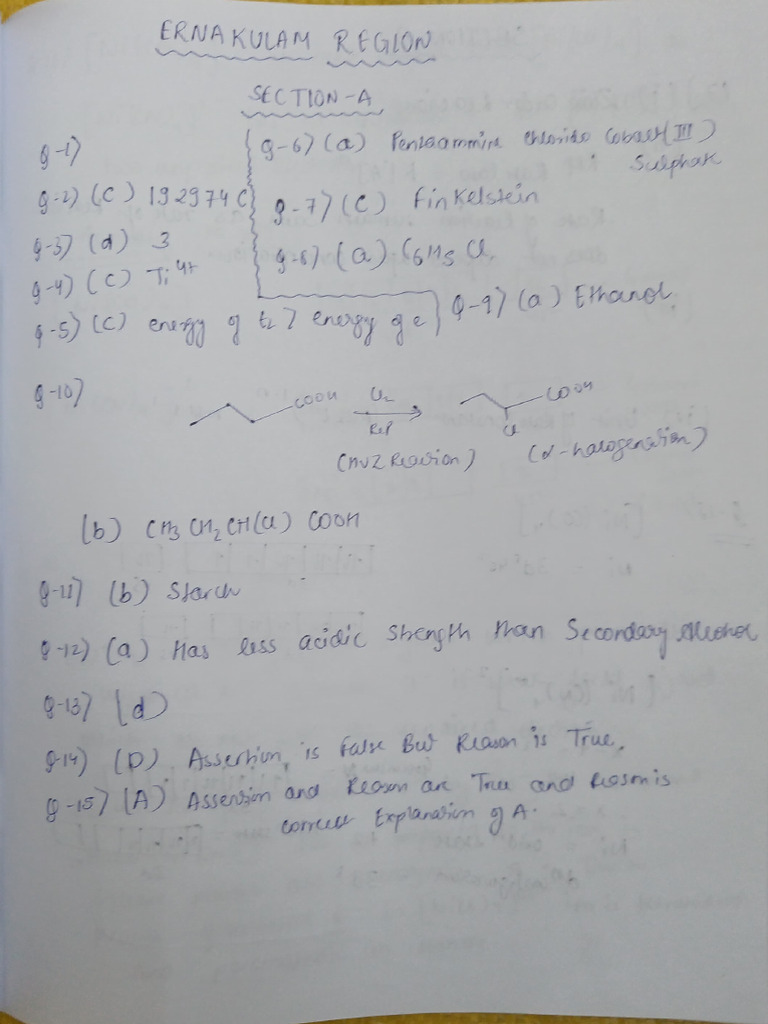 ERNAKULAM REGION
SECTION-A
Q-1)
Q-2) (C) 192974 C
Q-3) (d) 3
Q-4) (C) Ti4+
Q-5) (C) energy of t2 > energy of e
Q-6) (a) Pentaammine chlorido Cobalt (III)
Sulphate
Q-7) (C) Finkelstein
Q-8) (a) C6H5 Cl
Q-9) (a) Ethanol
Q-10) COOH Cl2 Red P COOH Cl
(HVZ Reaction) (α-halogenation)
(b) CH3 CH2 CH(Cl) COOH
Q-11) (b) Starch
Q-12) (a) Has less acidic strength than Secondary Alcohol
Q-13) (d)
Q-14) (D) Assertion is False But Reason is True.
Q-15) (A) Assertion and Reason are True and Reason is
correct Explanation of A.